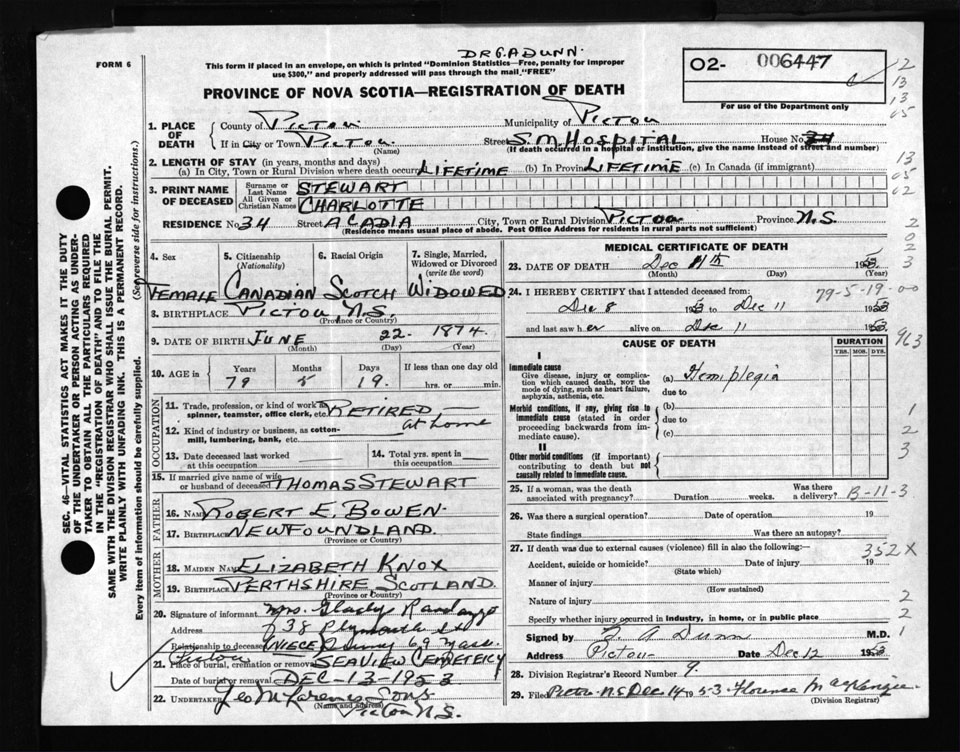 DR G.A DUNN.
FORM 6
This form if placed in an envelope, on which is printed "Dominion Statistics—Free, penalty for improper
use $300," and properly addressed will pass through the mail "FREE"
O2- 006447
For use of the Department only
PROVINCE OF NOVA SCOTIA—REGISTRATION OF DEATH
12
13
13
05
13
05
02
2
0
2
3
1. PLACE OF DEATH
County of PICTOU Municipality of PICTOU
If in City or Town PICTOU (Name) Street S.M. HOSPITAL House No. 34
(If death occurred in a hospital or institution, give the name instead of street and number)
2. LENGTH OF STAY (in years, months and days)
(a) In City, Town or Rural Division where death occurred LIFETIME (b) In Province LIFETIME (c) In Canada (if immigrant)
3. PRINT NAME OF DECEASED
Surname or Last Name STEWART
All Given or Christian Names CHARLOTTE
RESIDENCE No. 34 Street ACADIA City, Town or Rural Division PICTOU Province N.S.
(Residence means usual place of abode. Post Office Address for residents in rural parts not sufficient)
4. Sex FEMALE
5. Citizenship (Nationality) CANADIAN
6. Racial Origin SCOTCH
7. Single, Married, Widowed or Divorced (write the word) WIDOWED
8. BIRTHPLACE PICTOU, N.S.
(Province or Country)
9. DATE OF BIRTH JUNE 22. 1874.
(Month) (Day) (Year)
10. AGE in Years 79 Months 5 Days 19. If less than one day old
hrs. or min.
OCCUPATION
11. Trade, profession, or kind of work as spinner, teamster, office clerk, etc. RETIRED,—
at home
12. Kind of industry or business, as cotton-mill, lumbering, bank, etc.
13. Date deceased last worked at this occupation
14. Total yrs. spent in this occupation
15. If married give name of wife or husband of deceased THOMAS STEWART
FATHER
16. NAME ROBERT E. BOWEN.
17. BIRTHPLACE NEWFOUNDLAND.
(Province or Country)
MOTHER
18. MAIDEN NAME ELIZABETH KNOX
19. BIRTHPLACE PERTHSHIRE SCOTLAND.
(Province or Country)
20. Signature of informant Mrs. Gladys Randazzo
Address 738 Plymouth
Relationship to deceased NIECE Quincy 69 Mass.
Pictou
21. Place of burial, cremation or removal SEAVIEW CEMETERY
Date of burial or removal DEC-13-1953
22. UNDERTAKER Geo McLaren & Sons
(Name and address)
PICTOU N.S.
MEDICAL CERTIFICATE OF DEATH
23. DATE OF DEATH Dec 11th 1953.
(Month) (Day) (Year)
24. I HEREBY CERTIFY that I attended deceased from: 79-5-19-00
Dec 8 1953 to Dec 11 1953
and last saw her alive on Dec 11 1953.
963
CAUSE OF DEATH
DURATION
YRS. MOS. DYS.
I
Immediate cause
Give disease, injury or complication which caused death, NOT the mode of dying, such as heart failure, asphyxia, asthenia, etc.
(a) Hemiplegia
due to
Morbid conditions, if any, giving rise to immediate cause (stated in order proceeding backwards from immediate cause).
(b)
due to
(c)
1
2
3
II
Other morbid conditions (if important) contributing to death but not causally related to immediate cause.
25. If a woman, was the death associated with pregnancy? Duration weeks. Was there a delivery? B-11-3
26. Was there a surgical operation? Date of operation 19
State findings Was there an autopsy?
27. If death was due to external causes (violence) fill in also the following:— 352X
Accident, suicide or homicide? Date of injury 19
(State which)
Manner of injury
(How sustained)
Nature of injury 2
Specify whether injury occurred in industry, in home, or in public place 2
Signed by G. A Dunn M.D. 1
Address Pictou Date Dec 12 1953
28. Division Registrar's Record Number 9.
29. Filed Pictou NS Dec 14 1953. Florence MacKenzie
(Division Registrar)
SEC. 46—VITAL STATISTICS ACT MAKES IT THE DUTY
OF THE UNDERTAKER OR PERSON ACTING AS UNDER-
TAKER TO OBTAIN ALL THE PARTICULARS REQUIRED
IN THE "REGISTRATION OF DEATH" AND TO FILE THE
SAME WITH THE DIVISION REGISTRAR WHO SHALL ISSUE THE BURIAL PERMIT.
WRITE PLAINLY WITH UNFADING INK. THIS IS A PERMANENT RECORD.
Every item of information should be carefully supplied. (See reverse side for instructions.)